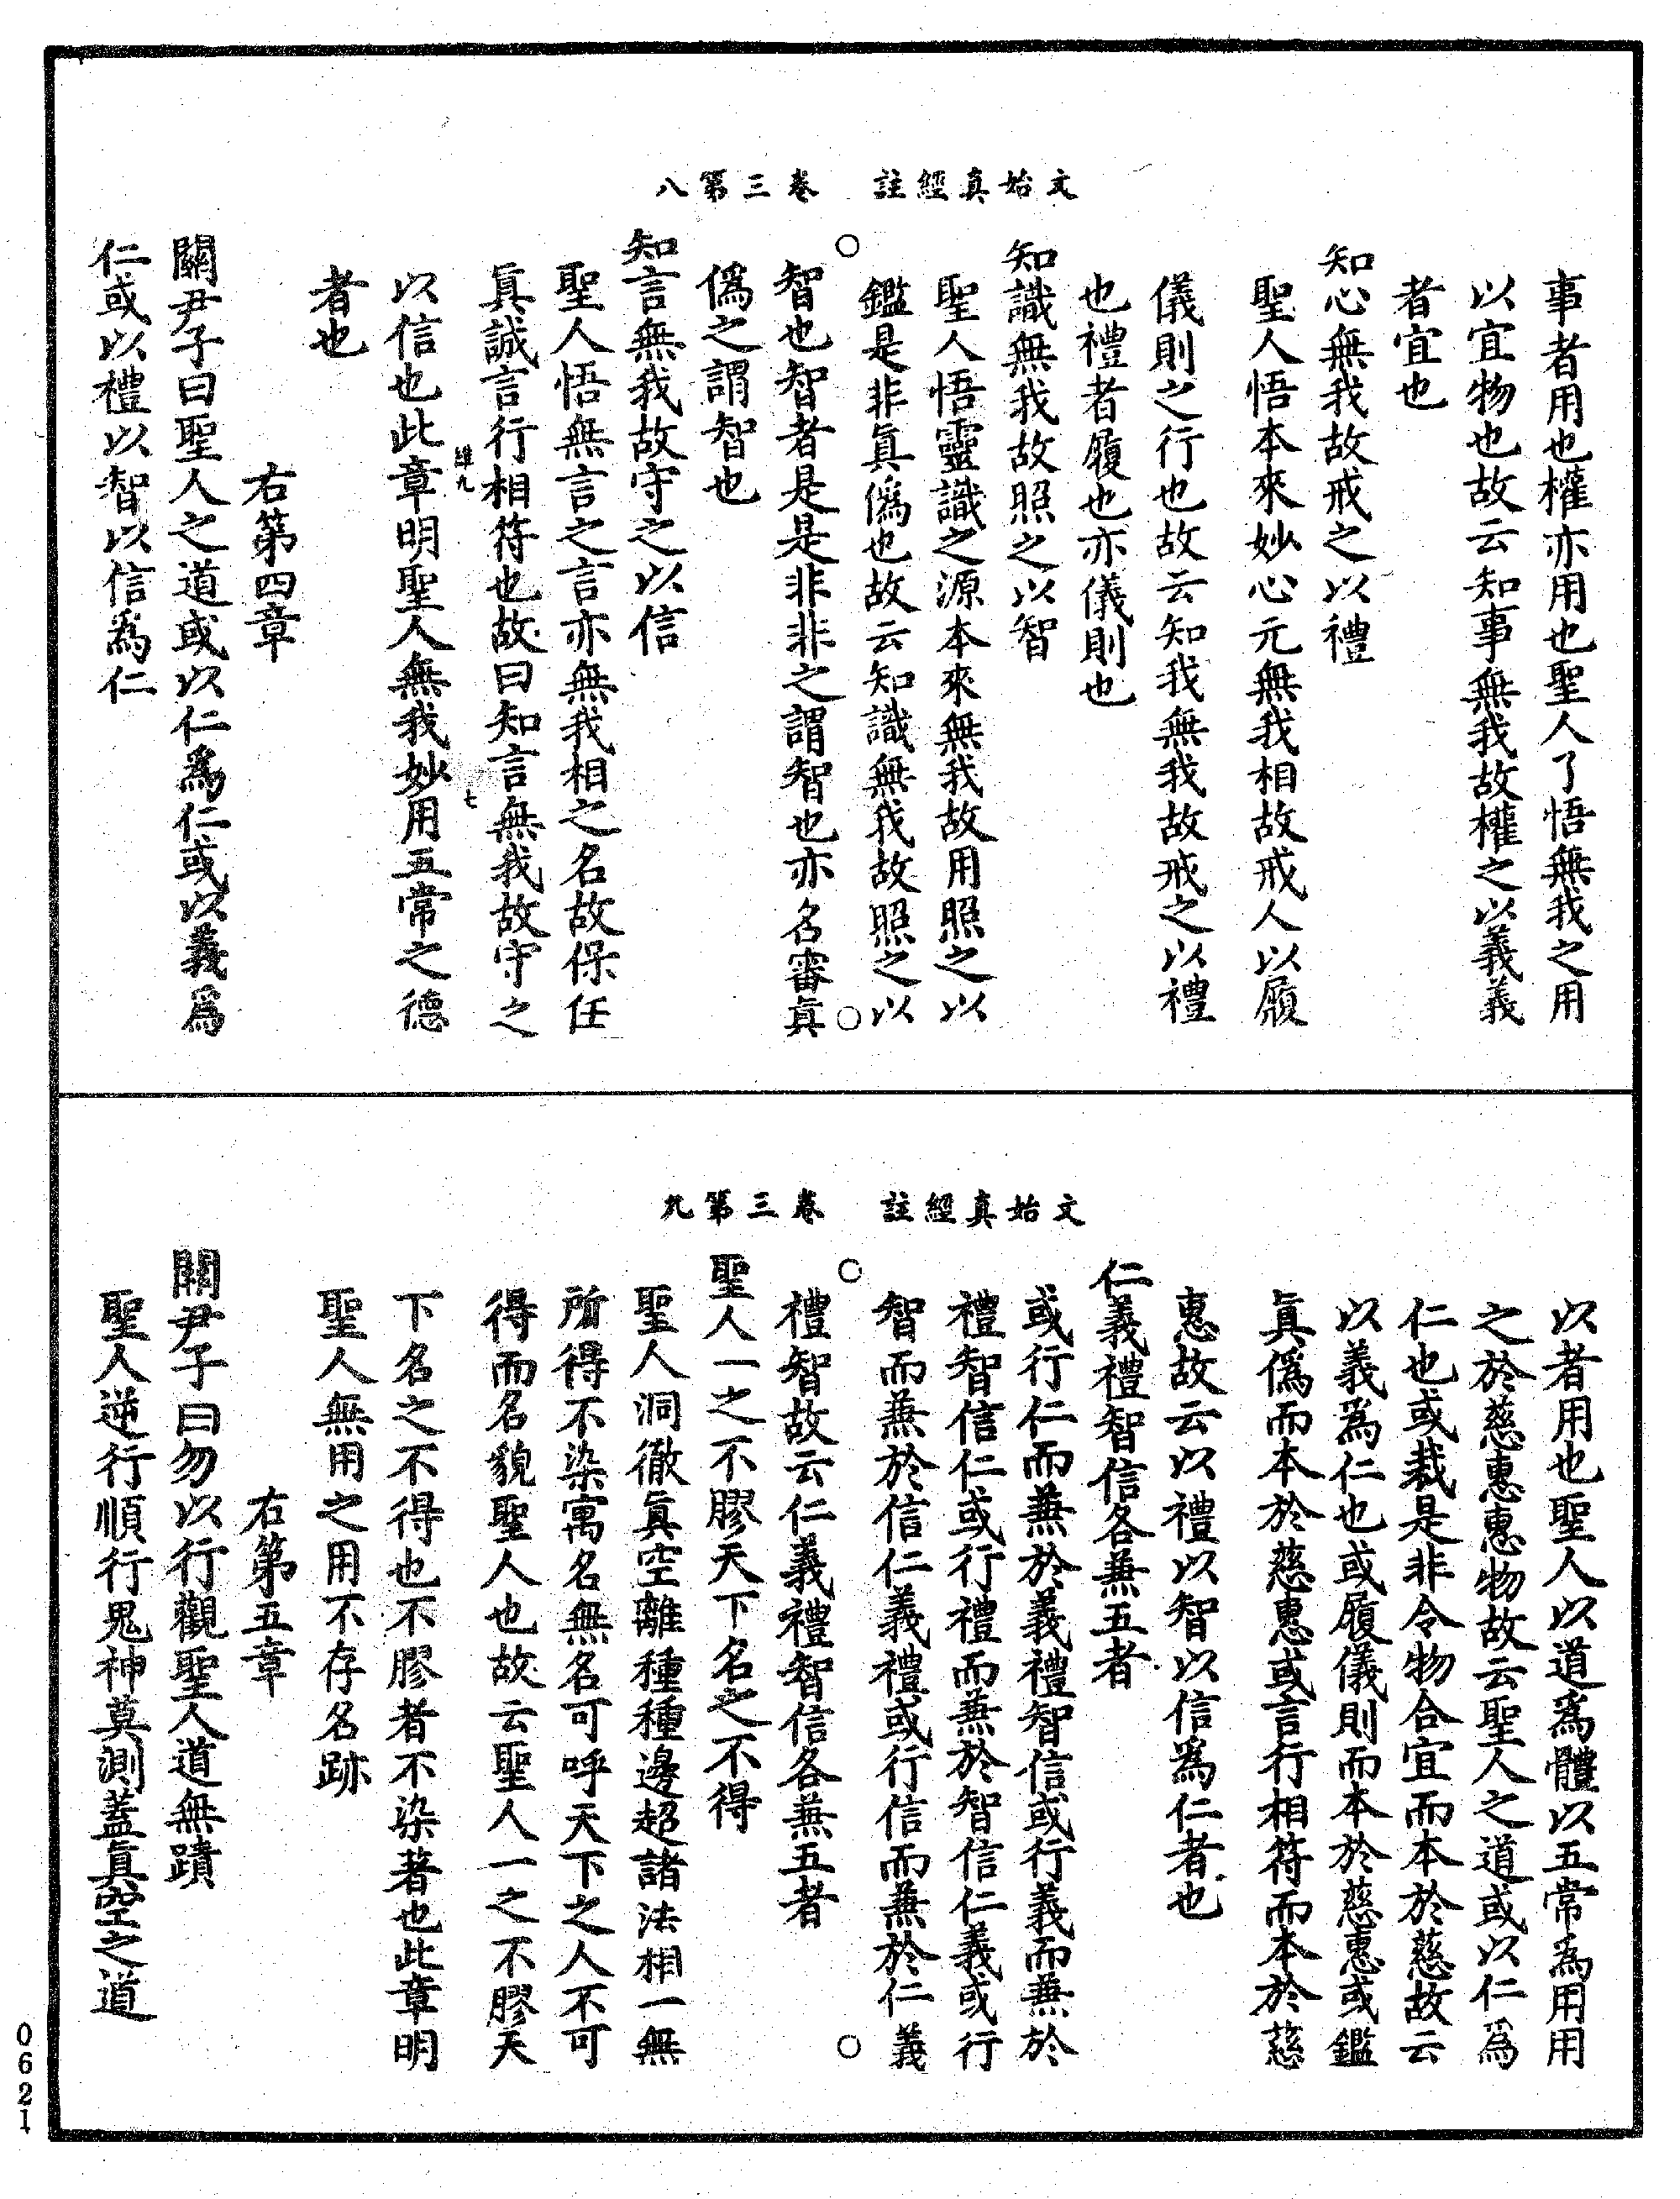 文始真經註　卷三第八
事者用也權亦用也聖人了悟無我之用
以宜物也故云知事無我故權之以義義
者宜也
知心無我故戒之以禮
聖人悟本來妙心元無我相故戒人以履
儀則之行也故云知我無我故戒之以禮
也禮者履也亦儀則也
知識無我故照之以智
聖人悟靈識之源本來無我故用照之以
鑑是非真僞也故云知識無我故照之以
智也智者是是非非之謂智也亦名審真
僞之謂智也
知言無我故守之以信
聖人悟無言之言亦無我相之名故保任
真誠言行相符也故曰知言無我故守之
以信也此章明聖人無我妙用五常之德
者也
右第四章
關尹子曰聖人之道或以仁爲仁或以義爲
仁或以禮以智以信爲仁
文始真經註　卷三第九
以者用也聖人以道爲體以五常爲用用
之於慈惠惠物故云聖人之道或以仁爲
仁也或裁是非令物合宜而本於慈故云
以義爲仁也或履儀則而本於慈惠或鑑
真僞而本於慈惠或言行相符而本於慈
惠故云以禮以智以信爲仁者也
仁義禮智信各兼五者
或行仁而兼於義禮智信或行義而兼於
禮智信仁或行禮而兼於智信仁義或行
智而兼於信仁義禮或行信而兼於仁義
禮智故云仁義禮智信各兼五者
聖人一之不膠天下名之不得
聖人洞徹真空離種種邊超諸法相一無
所得不染寓名無名可呼天下之人不可
得而名貌聖人也故云聖人一之不膠天
下名之不得也不膠者不染著也此章明
聖人無用之用不存名跡
右第五章
關尹子曰勿以行觀聖人道無蹟
聖人逆行順行鬼神莫測蓋真空之道
0621